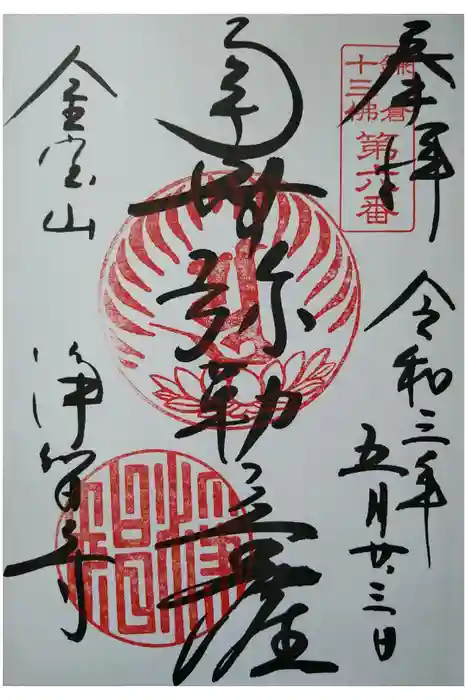 鎌倉
十三佛
第六番
奉拝
令和三年
五月廿三日
世弥勒菩薩
金宝山
浄智寺